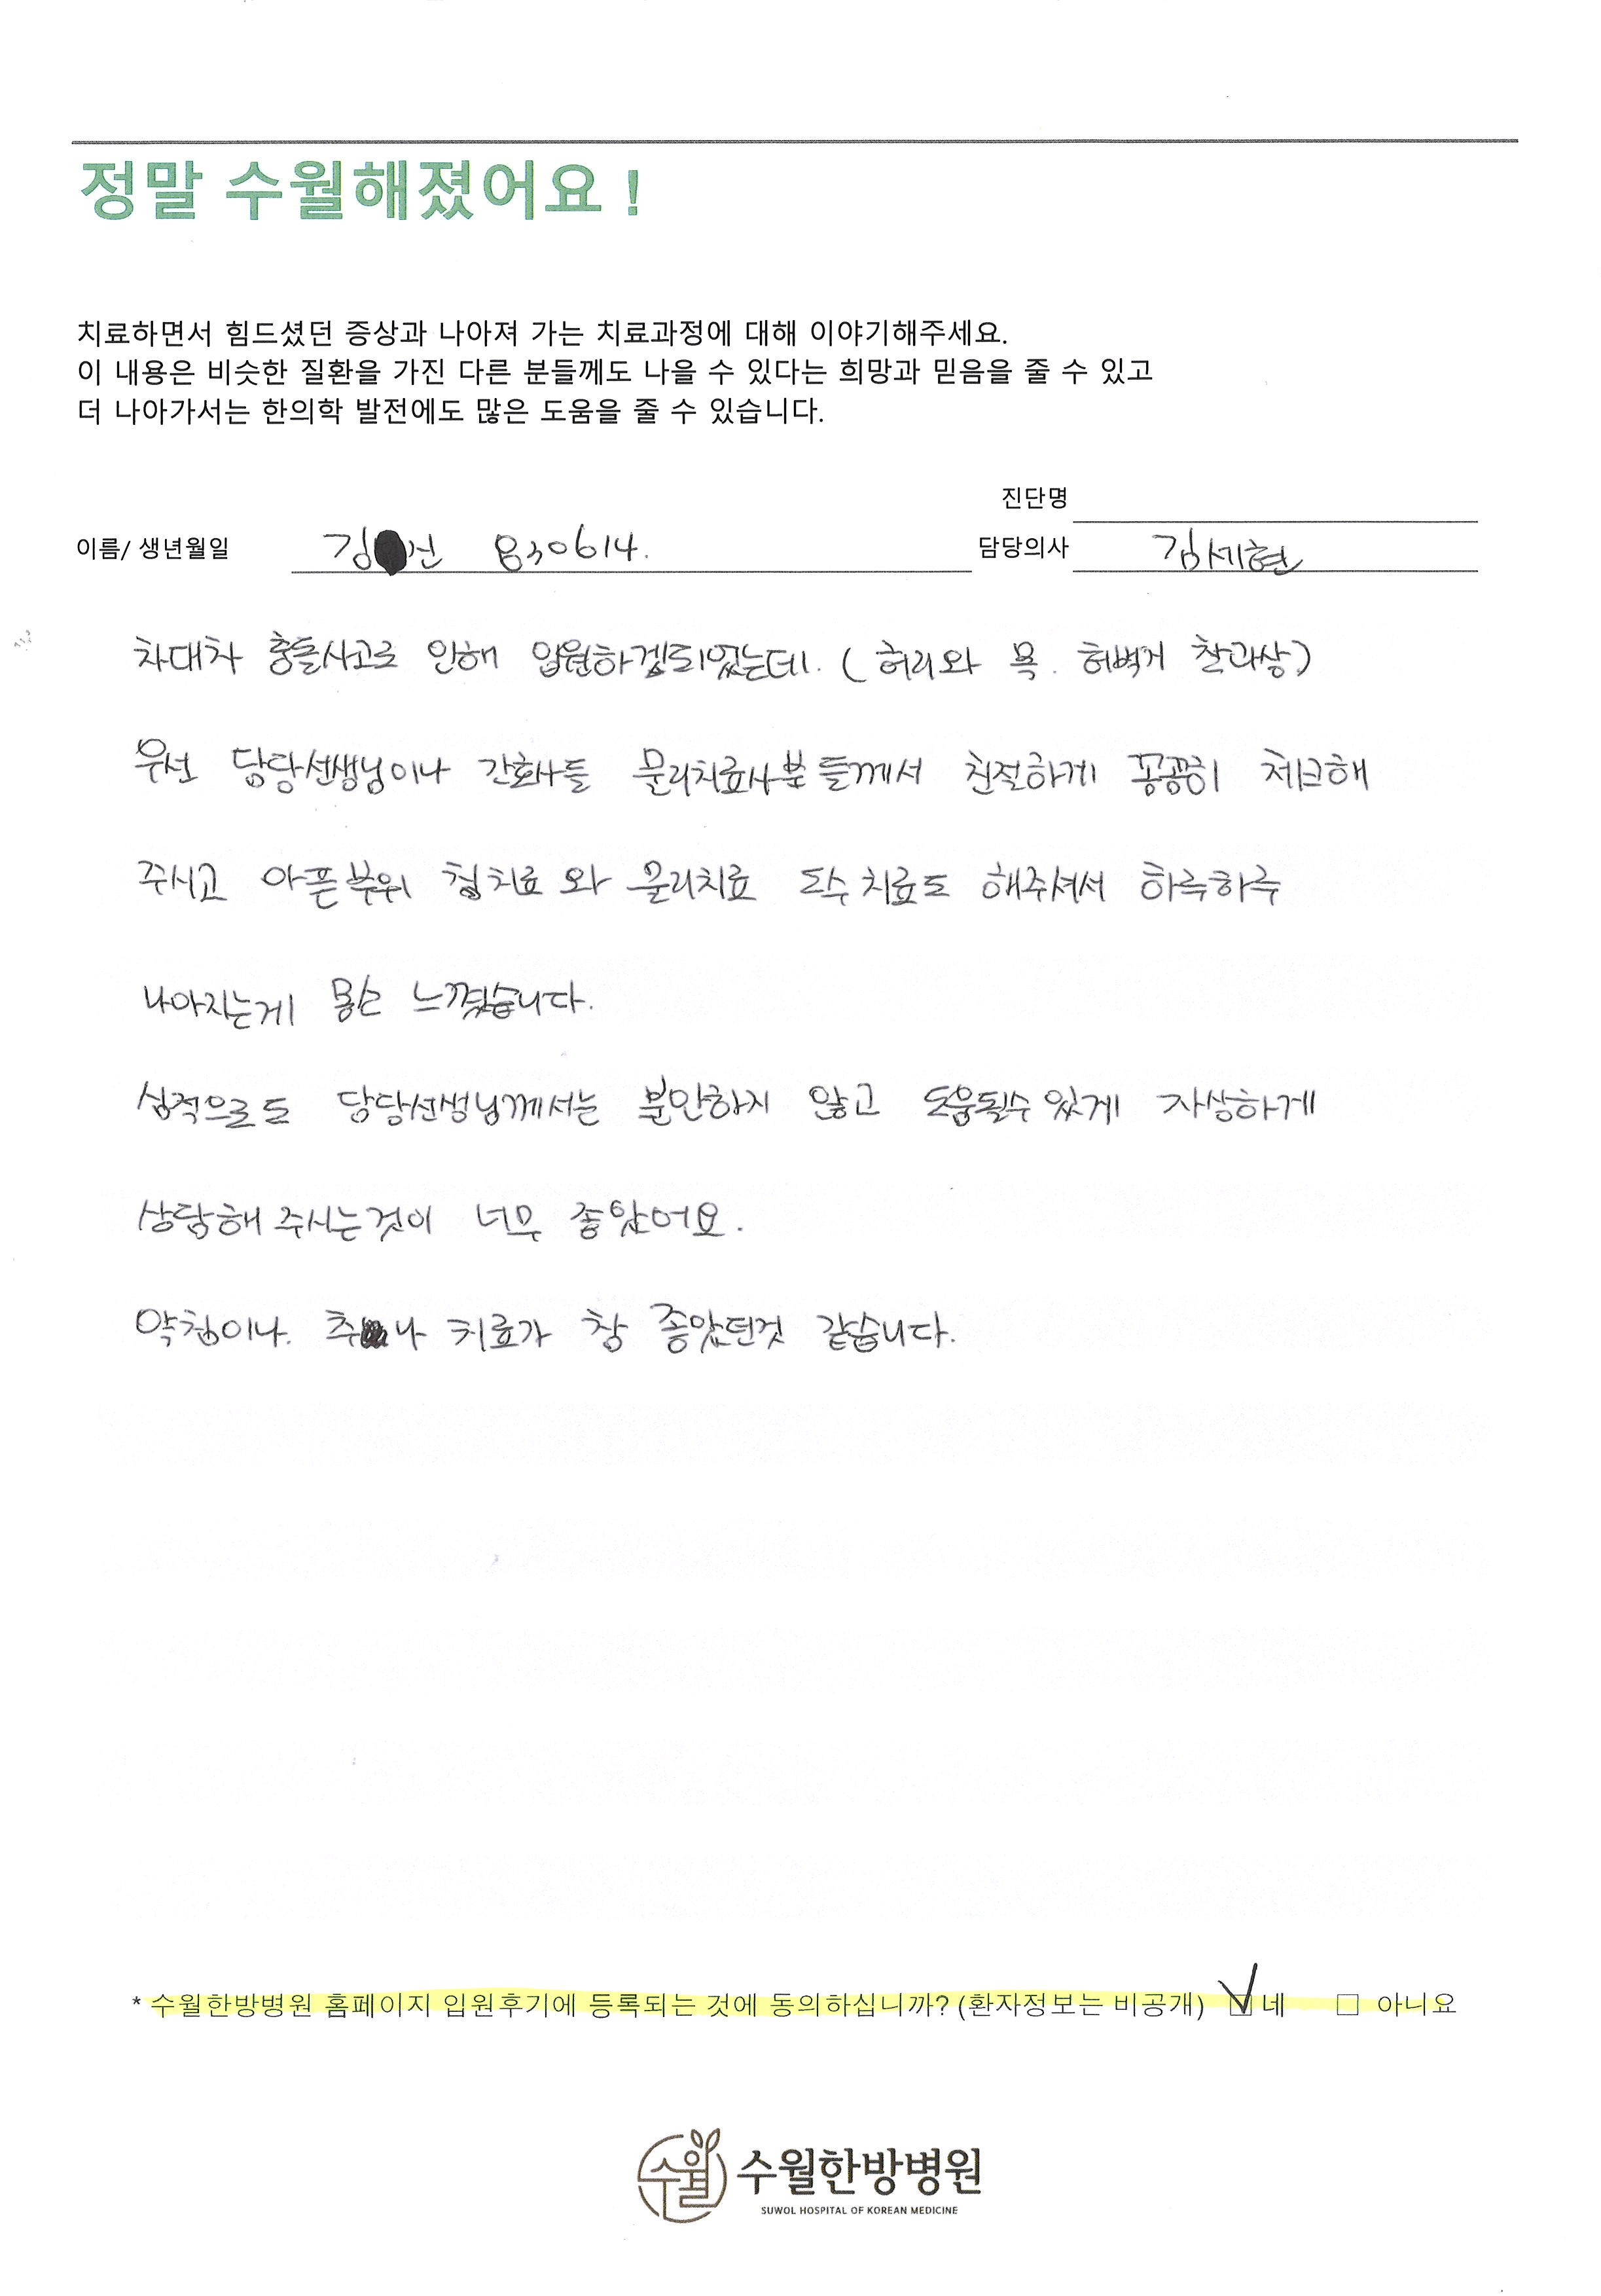 정말 수월해졌어요 !
치료하면서 힘드셨던 증상과 나아져 가는 치료과정에 대해 이야기해주세요.
이 내용은 비슷한 질환을 가진 다른 분들께도 나을 수 있다는 희망과 믿음을 줄 수 있고
더 나아가서는 한의학 발전에도 많은 도움을 줄 수 있습니다.
진단명
이름/ 생년월일 김 건 830614. 담당의사 김세현
차대차 충돌사고로 인해 입원하게되었는데. (허리와 목. 허벅지 찰과상)
우선 담당선생님이나 간호사들 물리치료사분들께서 친절하게 꼼꼼히 체크해
주시고 아픈부위 침치료와 물리치료 도수치료도 해주셔서 하루하루
나아지는게 몸은 느꼈습니다.
심적으로도 담당선생님께서는 불안하지 않고 도움될수있게 자상하게
상담해 주시는것이 너무 좋았어요.
약침이나. 추나 치료가 참 좋았던것 같습니다.
* 수월한방병원 홈페이지 입원후기에 등록되는 것에 동의하십니까? (환자정보는 비공개) ☑ 네 □ 아니요
수월 수월한방병원
SUWOL HOSPITAL OF KOREAN MEDICINE